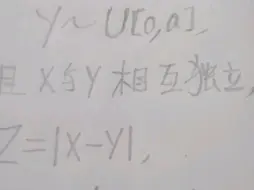 Y~U[0,a],
且X与Y相互独立,
Z=|X-Y|,